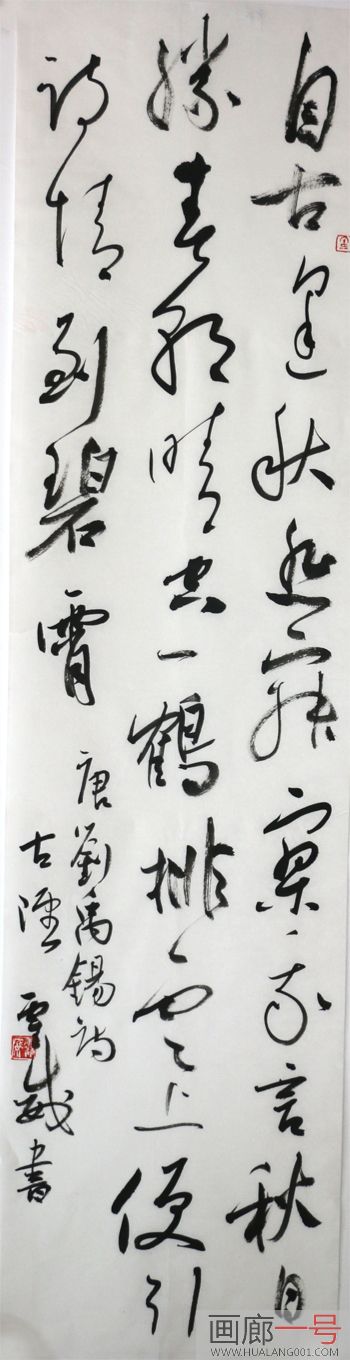 自古逢秋悲寂寥我言秋日
胜春朝晴空一鹤排云上便引
诗情到碧霄
唐劉禹錫诗
古陘 書
画廊一号
WWW.HUALANG001.COM